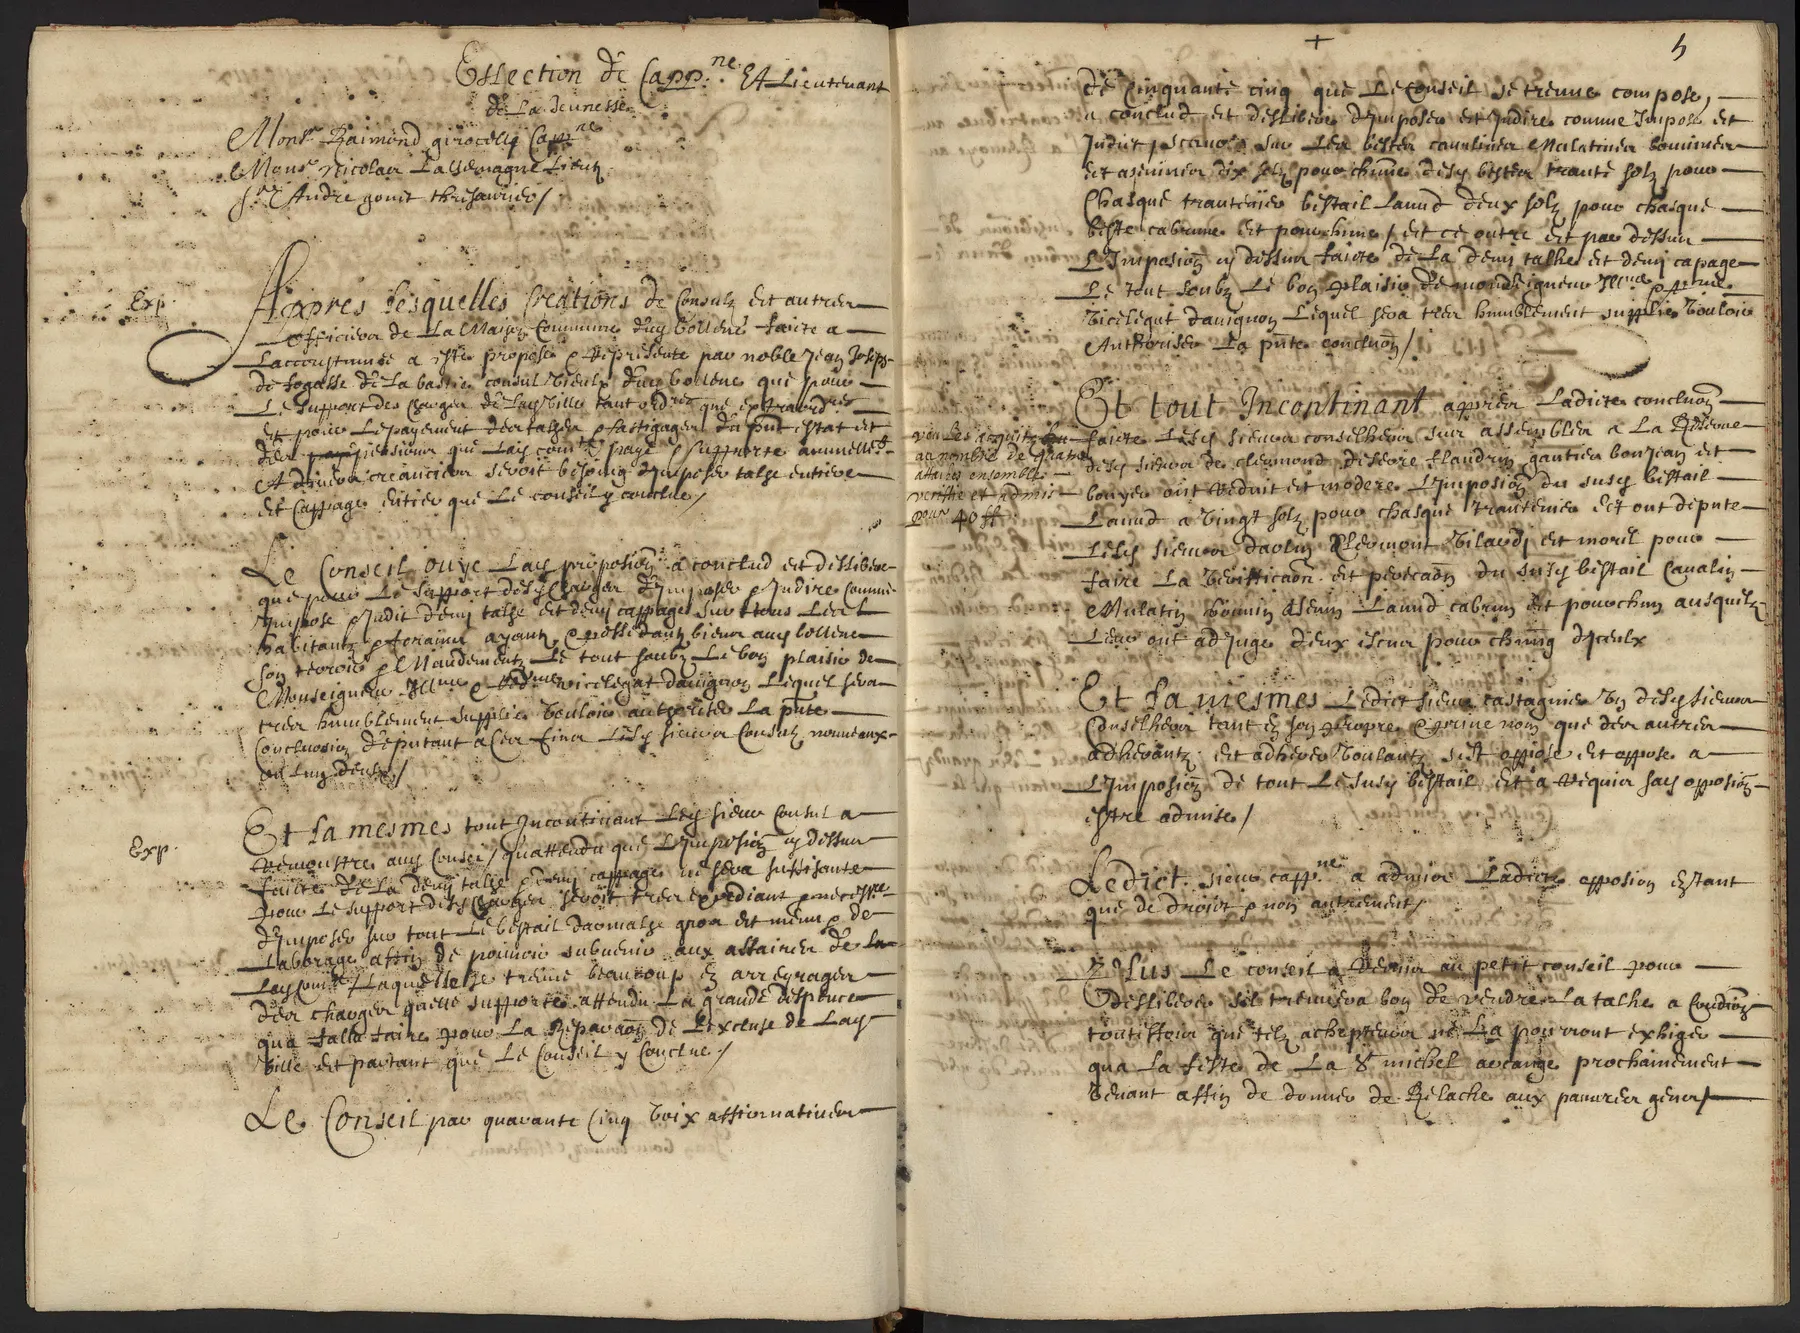 Eslection de Capp.ne Et Lieutenant
de La Jeunesse
Monsr Raimond Capne
Monsr Nicolas Lassemagne Lieut
Sr Andre gonit thresaurier /
Exp.
Appres lesquelles Creations de Consulz et autres
officiers de La Maison Commune dud bollene faicte a
Laccoustumee a este propose & Represente par noble Jean Joseph
de fogasse de La bastie consul vieulx dud bollene que pour
Le support des charges de Lad Ville tant ordres que extraordres
et pour Le payement des talhes & du pnt estat et
des pensions que Lad comte paye & supporte annuellet
A divers creanciers seroit besoing dimposer talhe entiere
et Cappage entier que Le conseil y conclue /
Le Conseil ouye Lad proposion a conclud et dellibere
que pour Le support desd charges dimposer & Indire comme
Impose & Indit demy talhe et demy cappage sur tous Les
habitantz & forains ayantz & possedantz biens aud bollene
son terroir & Mandementz Le tout soubz Le bon plaisir de
Monseigneur Illme & Rdme vicelegat davignon Lequel sera
tres humblement supplie vouloir authoriser La pnte
Conclusion deputant a ces fins Lesd sieurs Consulz nouveaux
ou Lung deulx /
Exp.
Et fa mesmes tout Incontinant Led sieur Consul a
Remonstre aud Conseil / quattendu que Limposion cy dessus
faicte de La demy talhe & demy cappage ne sera suffisante
pour Le support desd charges seroit tres expediant & necessre
dimposer sur tout Le bestail daumalhe gros et menu & de
Laborage affin de pouvoir subvenir aux affaires de La
Lad comte / Laquelle se treuve beaucoup en arreyrages
des charges quelle supporte attendu La grande despence
qua fallu faire pour La Reparaon de Lescluse de Lad
Ville et partant que Le Conseil y Conclue /
Le Conseil par quarante Cinq voix affirmatives
+
5
de Cinquante cinq que Le Conseil se treuve compose,
a conclud et dellibere dimposer et Indire comme Impose et
Indict scavoir sur Les bestes cavalines Mulatines bouvines
et asenines dix solz pour chune desd bestes trante solz pour
Chasque trantenier bestail Lanud deux solz pour chasque
beste cabrune et pourchine / et ce outre et par dessus
LImposion cy dessus faicte de La demy talhe et demy capage
Le tout soubz Le bon plaisir de monseigneur Illme & Rdme
vicelegat davignon Lequel sera tres humblement supplie vouloir
Authoriser La pnte concluon /
Et tout Incontinant appres Ladicte concluon
faicte Lesd sieurs conselhers sur assembles a La Reserve
desd sieurs de clermond flandrin gautier bonjean et
bouyer ont Reduit et modere LImposion du susd bestail
Lanud a vingt solz pour chasque trantenier Et ont depute
Lesd sieurs Clermont et moril pour
faire La veriffication et perecaon du susd bestail Cavalin
Mulatin bouvin Asenin Lanud cabrun et pourchin ausquelz
Leur ont adjuge deux escus pour chung diceulx
au nombre de quatre
attaches ensemble
veriffie et admis
pour 40 ff
Et fa mesmes Ledict sieur castagnier un desd sieurs
Conselhers tant en son propre & prive nom que des autres
adherantz et adherer voulantz sest oppose et oppose a
LImposion de tout Le susd bestail et a Requis sad opposion
estre admise /
Ledict sieur capp.ne a admise Ladicte opposion Estant
que de droict & non autrement /
Plus Le conseil a Remis au petit conseil pour
delliberer sil treuvera bon de vendre La talhe a Condition
toutesfois que telz achepteurs ne La pourront exhiger
qua La feste de La St michel arcange prochainement
venant affin de donner de Relache aux pauvres gens /